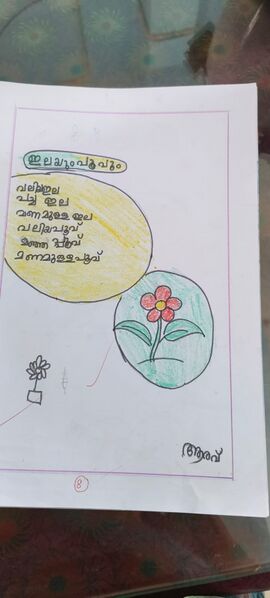 ഇലയുംപൂവും
വലിയഇല
പച്ച ഇല
മണമുള്ള ഇല
വലിയപൂവ്
മഞ്ഞ പൂവ്
മണമുള്ളപൂവ്
ആരവ്
8